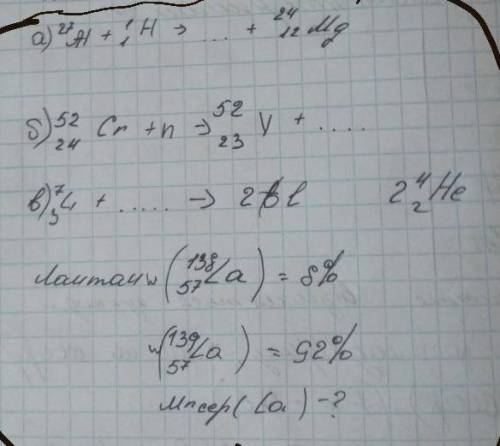 а) ²⁷Al + ¹₁H → ... + ²⁴₁₂Mg
б) ⁵²₂₄Cr + n → ⁵²₂₃V + ....
в) ⁷₃Li + ..... → 2 2⁴₂He
Лантан w(¹³⁸₅₇La) = 8%
w(¹³⁹₅₇La) = 92%
(La) - ?